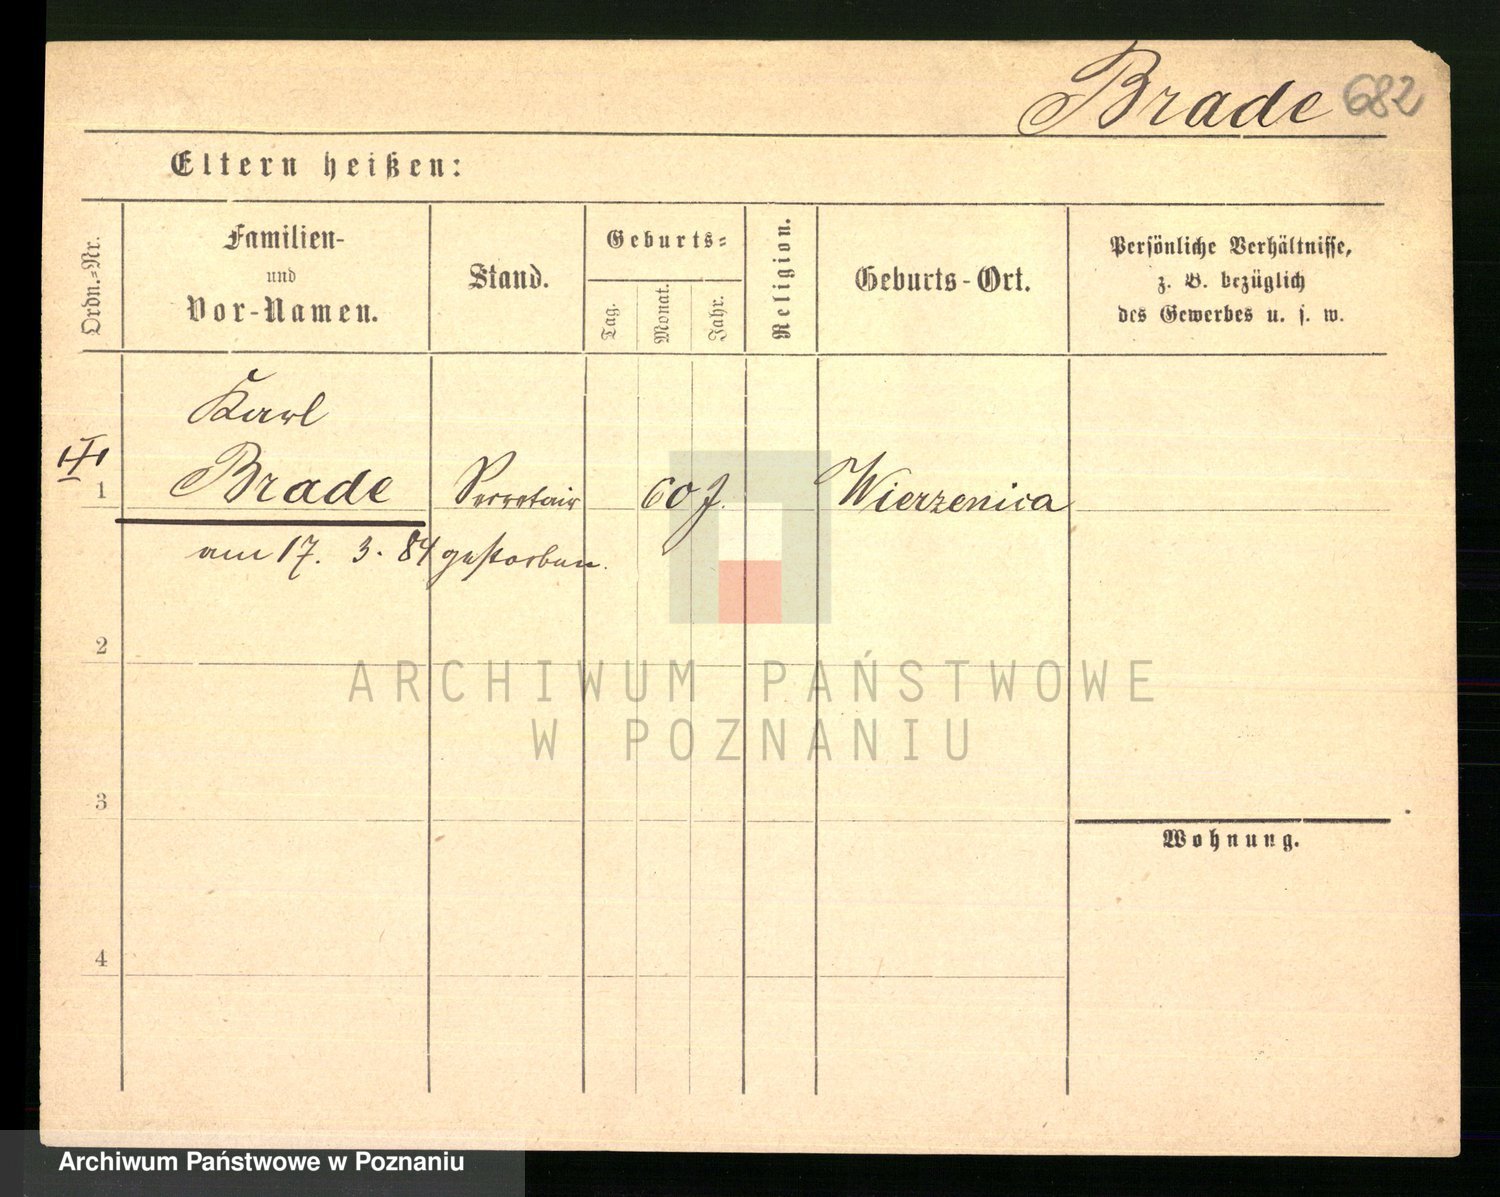 Brade 682
Eltern heißen:
Ordn.-Nr.
Familien-
und
Vor-Namen.
Stand.
Geburts-
Tag.
Monat.
Jahr.
Religion.
Geburts-Ort.
Persönliche Verhältnisse,
z. B. bezüglich
des Gewerbes u. s. w.
Karl
1 Brade Secretair 60 J. Wierzenica
am 17. 3. 84 gestorben.
2
ARCHIWUM PAŃSTWOWE
W POZNANIU
3
Wohnung.
4
Archiwum Państwowe w Poznaniu